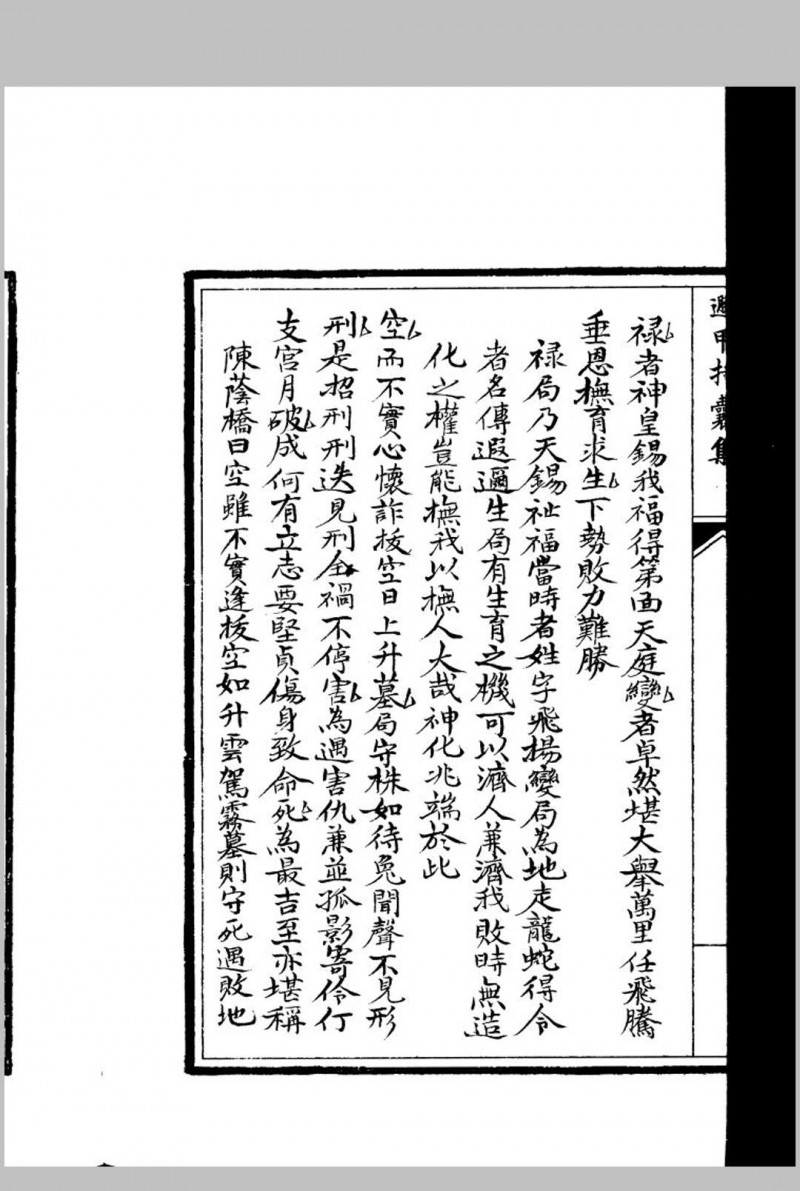 遁甲括囊集
禄者神皇錫我福得第面天庭變者卓然堪大舉萬里任飛騰
垂恩撫育求生下勢敗力難勝
禄局乃天錫祉福當時者姓字飛揚變局為地走龍蛇得令
者名傳遐邇生局有生育之機可以濟人兼濟我敗時無造
化之權豈能撫我以撫人大哉神化兆端於此
空而不實心懷詐拔空日上升墓局守株如待兔聞聲不見形
刑是招刑刑迭見刑全禍不停害為遇害仇兼並孤影寄伶仃
支宮月破成何有立志要堅貞傷身致命死為最吉至亦堪稱
陳蔭橋曰空雖不實逢拔空如升雲駕霧墓則守死遇敗地